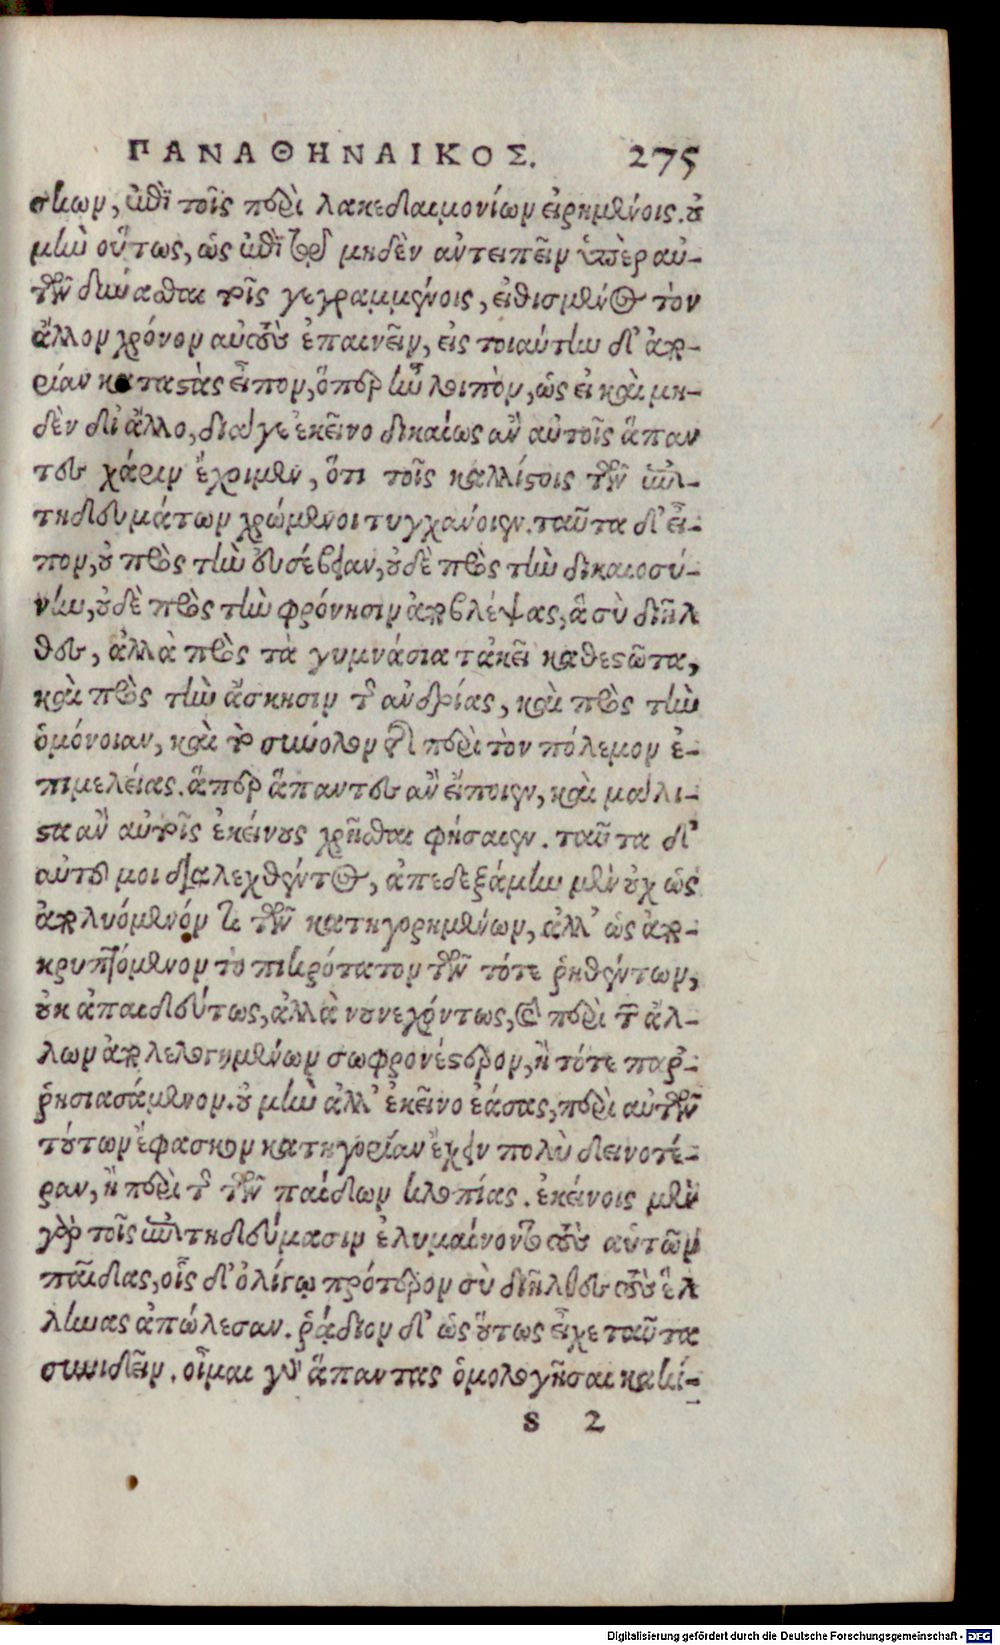 ΠΑΝΑΘΗΝΑΙΚΟΣ. 275
σκων, ἐπὶ τοῖς περὶ λακεδαιμονίων εἰρημένοις. οὐ
μὴν οὕτως, ὡς ἐπὶ τῷ μηδὲν ἀντειπεῖν ὑπὲρ αὐ-
τῶν δύνασθαι τοῖς γεγραμμένοις, εἰθισμένος τὸν
ἄλλον χρόνον αὐτοὺς ἐπαινεῖν, εἰς τοιαύτην δ' ἀπο-
ρίαν καταστὰς εἶπον, ὅπερ ἦν λοιπὸν, ὡς εἰ καὶ μη-
δὲν δι' ἄλλο, διά γε ἐκεῖνο δικαίως ἂν αὐτοῖς ἅπαν
τες χάριν ἔχοιμεν, ὅτι τοῖς καλλίστοις τῶν ἐπι-
τηδευμάτων χρώμενοι τυγχάνοιεν. ταῦτα δ' εἶ-
πον, οὐ πρὸς τὴν εὐσέβειαν, οὐδὲ πρὸς τὴν δικαιοσύ-
νην, οὐδὲ πρὸς τὴν φρόνησιν ἀποβλέψας, ἃ σὺ διῆλ
θες, ἀλλὰ πρὸς τὰ γυμνάσια τἀκεῖ καθεστῶτα,
καὶ πρὸς τὴν ἄσκησιν τῆς ἀνδρίας, καὶ πρὸς τὴν
ὁμόνοιαν, καὶ τὸ σύνολον τῆς περὶ τὸν πόλεμον ἐ-
πιμελείας. ἅπερ ἅπαντες ἂν εἴποιεν, καὶ μάλι-
στα ἂν αὐτοῖς ἐκείνους χρῆσθαι φήσαιεν. ταῦτα δ'
αὐτοῦ μοι διαλεχθέντος, ἀπεδεξάμην μὲν οὐχ ὡς
ἀπολυόμενόν τι τῶν κατηγορημένων, ἀλλ' ὡς ἀπο-
κρυπτόμενον τὸ πικρότατον τῶν τότε ῥηθέντων,
οὐκ ἀπαιδεύτως, ἀλλὰ νουνεχόντως, καὶ περὶ τῶν ἄλ-
λων ἀπολελογημένων σωφρονέστερον, ἢ τότε παρ-
ῥησιασάμενον. οὐ μὴν ἀλλ' ἐκεῖνο ἐάσας, περὶ αὐτῶν
τούτων ἔφασκον κατηγορίαν ἔχειν πολὺ δεινοτέ-
ραν, ἢ περὶ τῆς τῶν παίδων κλοπίας. ἐκείνοις μὲν
γὰρ τοῖς ἐπιτηδεύμασιν ἐλυμαίνοντο τοὺς αὑτῶν
παῖδας, οἷς δ' ὀλίγῳ πρότερον σὺ διῆλθες τοὺς ἕλ
ληνας ἀπώλεσαν. ῥᾴδιον δ' ὡς οὕτως εἶχε ταῦτα
συνιδεῖν. οἶμαι γὰρ ἅπαντας ὁμολογῆσαι κακί-
S 2
Digitalisierung gefördert durch die Deutsche Forschungsgemeinschaft - DFG